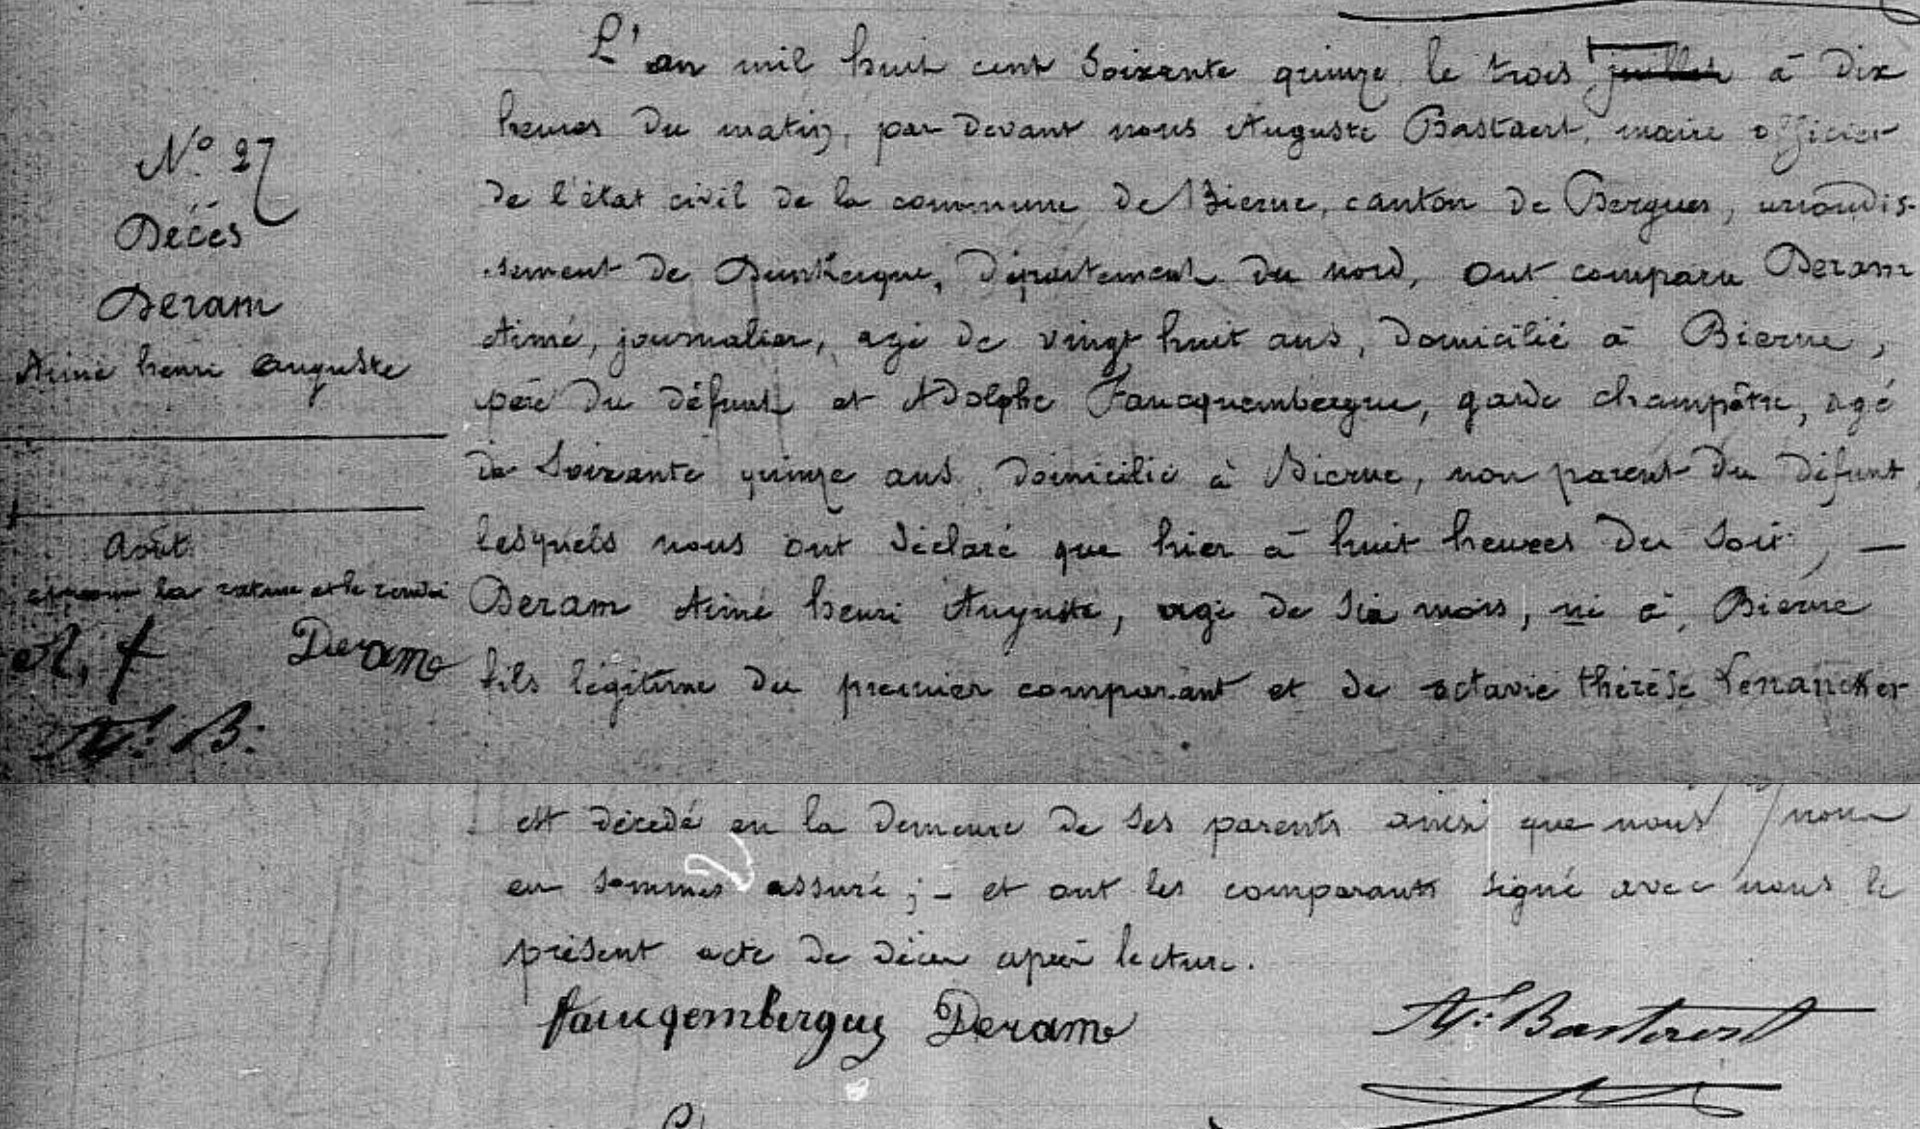 N° 27
Décès
Deram
Aimé henri auguste
Août
approuvé la rature et le renvoi
A. f Deram
At. B.
L'an mil huit cent soixante quinze le trois juillet à dix
heures du matin, par devant nous Auguste Bastaert, maire officier
de l'état civil de la commune de Bierne, canton de Bergues, arrondis-
sement de Dunkerque, département du nord, ont comparu Deram
Aimé, journalier, agé de vingt huit ans, domicilié à Bierne,
père du défunt et Adolphe Faucquembergue, garde champêtre, agé
de soixante quinze ans, domicilié à Bierne, non parent du défunt,
lesquels nous ont déclaré que hier à huit heures du soir, —
Deram Aimé henri Auguste, agé de six mois, né à, Bierne
fils légitime du premier comparant et de octavie thérèse
est décedé en la demeure de ses parents ainsi que nous nous
en sommes assuré ; - et ont les comparants signé avec nous le
présent acte de décès après lecture.
faucqembergue Deram At. Bastaert